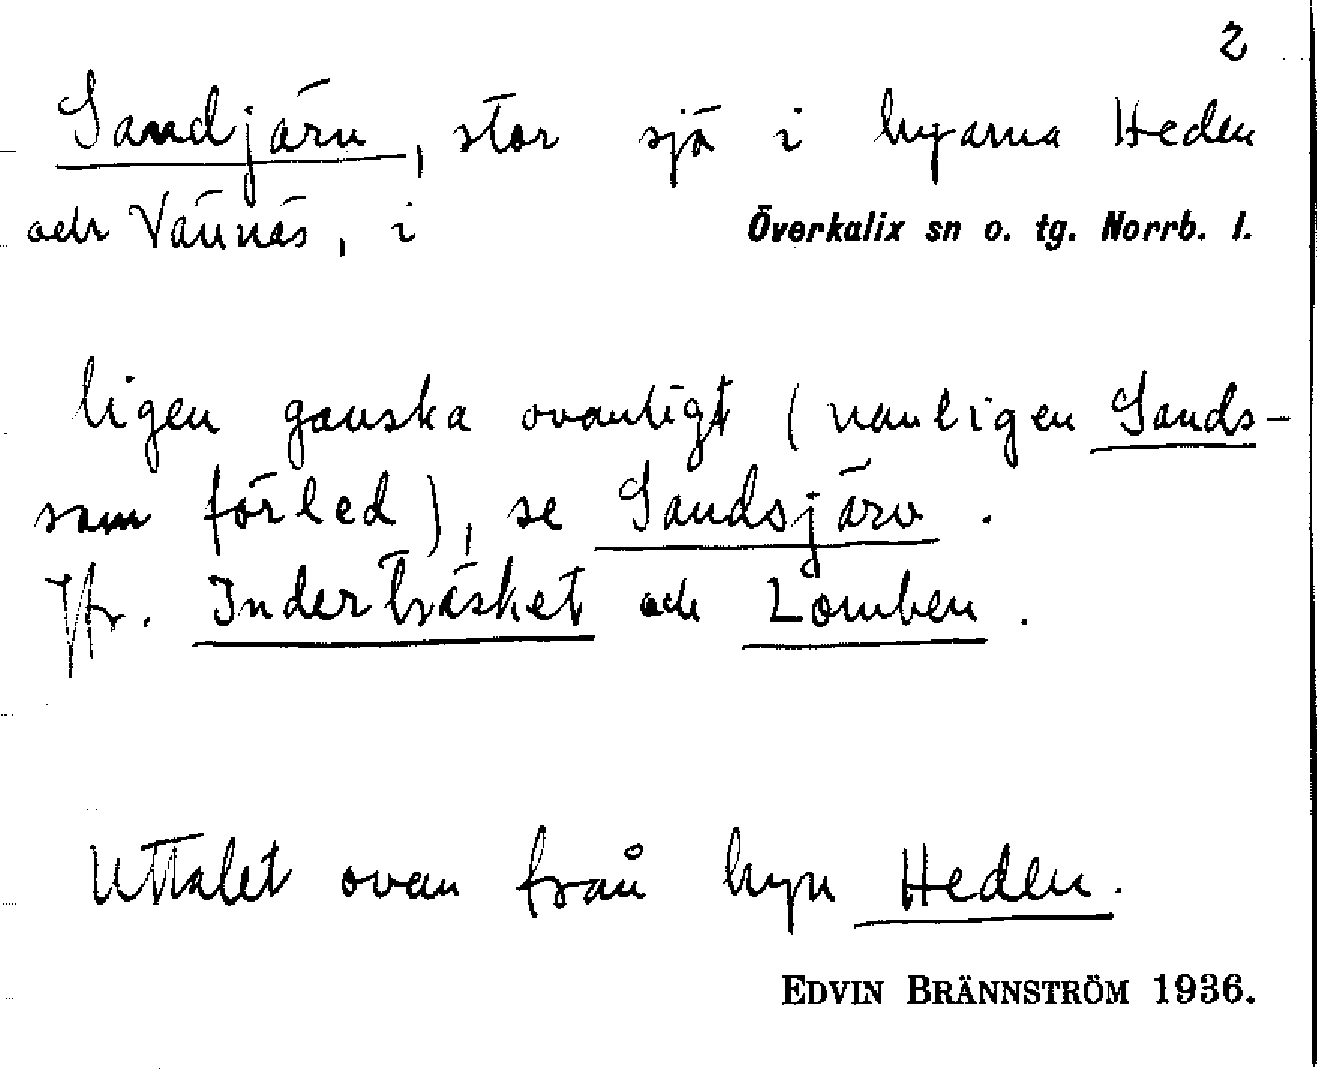 2
Sandjärv, stor sjö i byarna Heden
och Vännäs, i Överkalix sn o. tg. Norrb. l.
ligen ganska ovanligt (vanligen Sands-
som förled), se Sandsjärv.
Jfr. Inderträsket och Lomben.
Uttalet ovan från byn Heden.
EDVIN BRÄNNSTRÖM 1936.